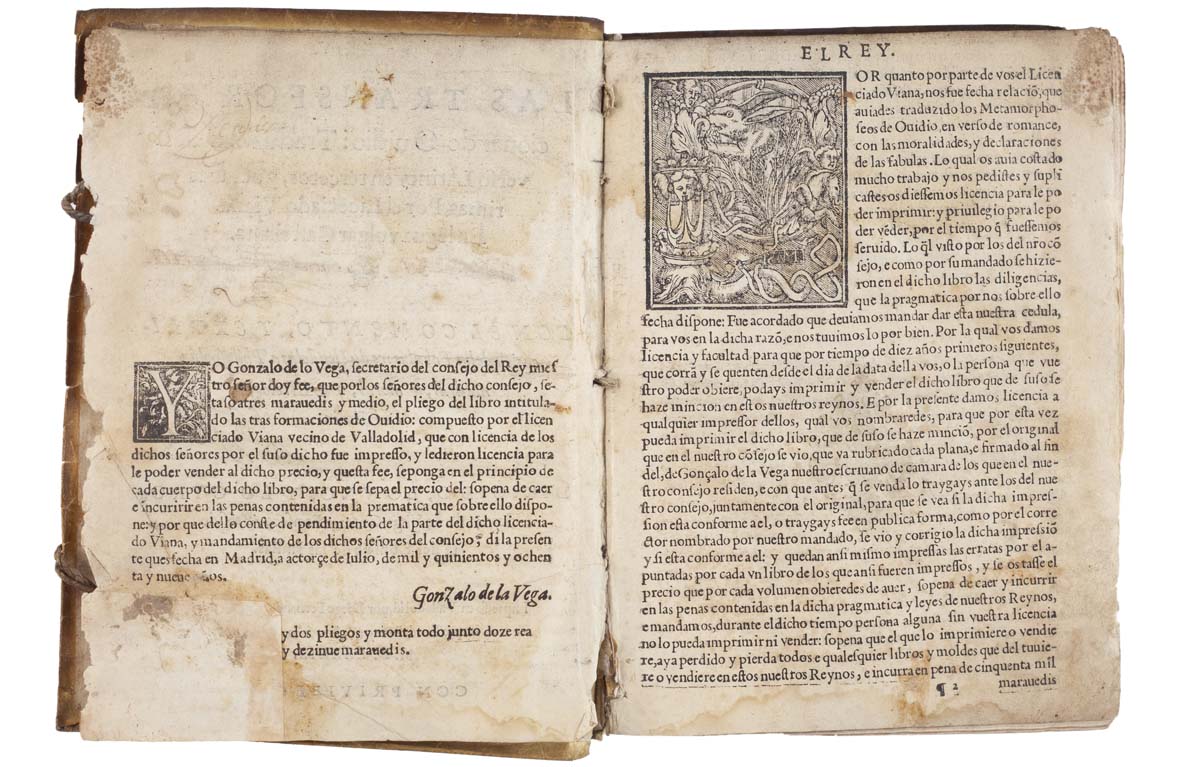 YO Gonzalo de lo Vega, secretario del consejo del Rey nuestro
tro señor doy fee, que por los señores del dicho consejo, se
tasó atres marauedis y medio, el pliego del libro intitula-
do las tras formaciones de Ouidio: compuesto por el licen
ciado Viana vecino de Valladolid, que con licencia de los
dichos señores por el suso dicho fue impresso, y ledieron licencia para
le poder vender al dicho precio, y questa fee, seponga en el principio de
cada cuerpo del dicho libro, para que se sepa el precio del: sopena de caer
e incuririr en las penas contenidas en la prematica que sobre ello dispo-
ne: y por que dello conste de pendimiento de la parte del dicho licencia-
do Viana, y mandamiento de los dichos señores del consejo, di la presen
te que sfecha en Madrid, a actorçe de Iulio, de mil y quinientos y ochen
ta y nueue años.
Gonzalo de la Vega.
y dos pliegos y monta todo junto doze rea
y dezinue marauedis.
EL REY.
OR quanto por parte de vos el Licen
ciado Viana, nos fue fecha relació, que
auiades traduzido los Metamorpho-
seos de Ouidio, en verso de romance,
con las moralidades, y declaraciones
de las fabulas. Lo qual os auia costado
mucho trabajo y nos pedistes y supli
castes os diessemos licencia para le po
der imprimir: y priuilegio para le po
der vẽder, por el tiempo q̃ fuessemos
seruido. Lo q̃l visto por los del nr̃o cõ
sejo, e como por su mandado se hizie-
ron en el dicho libro las diligencias,
que la pragmatica por nos sobre ello
fecha dispone: Fue acordado que deuiamos mandar dar esta nuestra cedula,
para vos en la dicha razõ, e nos tuuimos lo por bien. Por la qual vos damos
licencia y facultad para que por tiempo de diez años primeros siguientes,
que corrã y se quenten desde el dia de la data della vos, o la persona que vue
stro poder obiere, podays imprimir y vender el dicho libro que de suso se
haze mincion en estos nuestros reynos. E por la presente damos licencia a
qualquier impressor dellos, qual vos nombraredes, para que por esta vez
pueda imprimir el dicho libro, que de suso se haze minció, por el original
que en el nuestro cõsejo se vio, que va rubricado cada plana, e firmado al fin
del, de Gonçalo de la Vega nuestro escriuano de camara de los que en el nue-
stro consejo residen, e con que antes q̃ se venda lo traygays ante los del nue
stro consejo, juntamente con el original, para que se vea si la dicha impres-
sion esta conforme a el, o traygays fee en publica forma, como por el corre
ctor nombrado por nuestro mandado, se vio y corrigio la dicha impressiõ
y si esta conforme a el: y quedan ansi mismo impressas las erratas por el a-
puntadas por cada vn libro de los que ansi fueren impressos, y se os tasse el
precio que por cada volumen obieredes de auer, sopena de caer y incurrir
en las penas contenidas en la dicha pragmatica y leyes de nuestros Reynos,
e mandamos, durante el dicho tiempo persona alguna sin vuestra licencia
no lo pueda imprimir ni vender: sopena que el que lo imprimiere o vendie
re, aya perdido y pierda todos e qualesquier libros y moldes que del tuuie-
re o vendiere en estos nuestros Reynos, e incurra en pena de cinquenta mil
¶ 2 marauedis